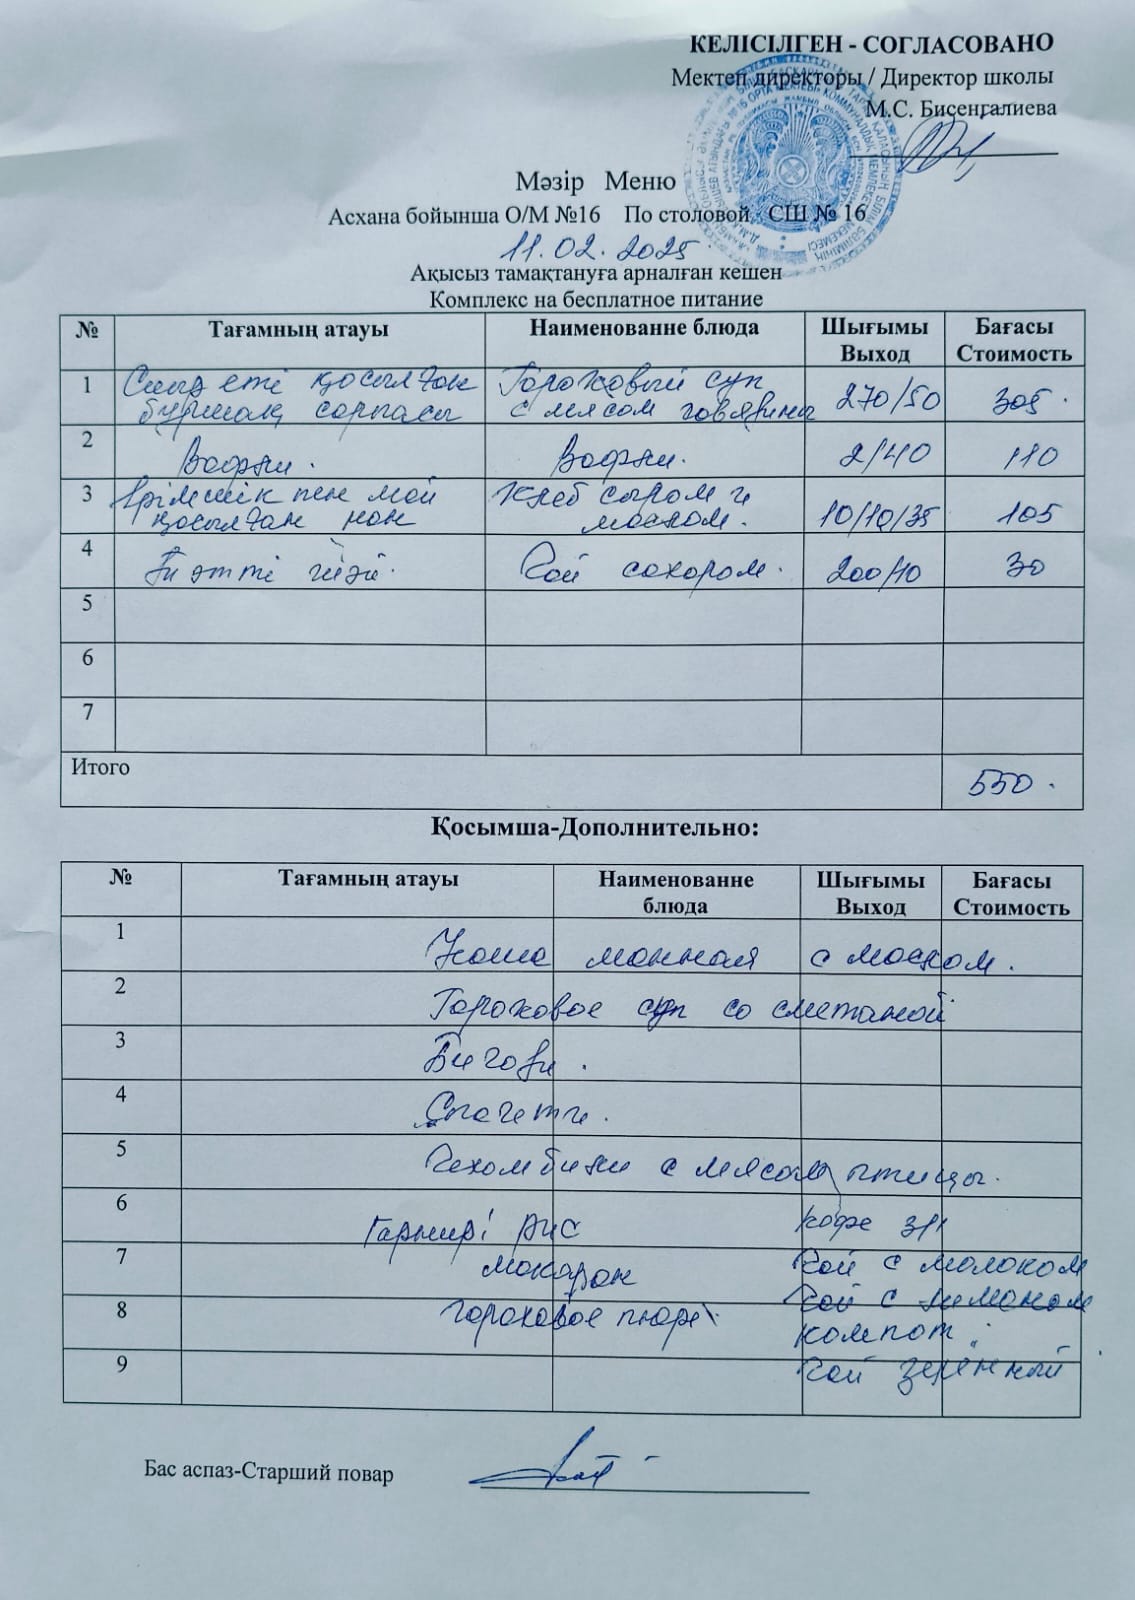 КЕЛІСІЛГЕН - СОГЛАСОВАНО
Мектеп директоры / Директор школы
М.С. Бисенгалиева
Мәзір Меню
Асхана бойынша О/М №16 По столовой СШ № 16
11.02.2025
Ақысыз тамақтануға арналған кешен
Комплекс на бесплатное питание
№ Тағамның атауы Наименованне блюда Шығымы Выход Бағасы Стоимость
1 Сиыр еті қосылған бұршақ сорпасы Гороховый суп с мясом говядины 270/50 305.
2 Вафли. Вафли. 2/40 110
3 Ірімшік пен май қосылған нан Хлеб сыром и маслом. 10/10/35 105
4 Тәтті шәй. Чай сахаром. 200/10 30
5
6
7
Итого 550.
Қосымша-Дополнительно:
№ Тағамның атауы Наименованне блюда Шығымы Выход Бағасы Стоимость
1 Каша манная с маслом.
2 Гороховое суп со сметаной
3 Бигоди.
4 Спагетти.
5 с мясом птицы.
6 Гарнир: рис кофе 3/1
7 макарон чай с молоком
чай с лимоном
8 гороховое пюре компот
9 чай зеленный
Бас аспаз-Старший повар